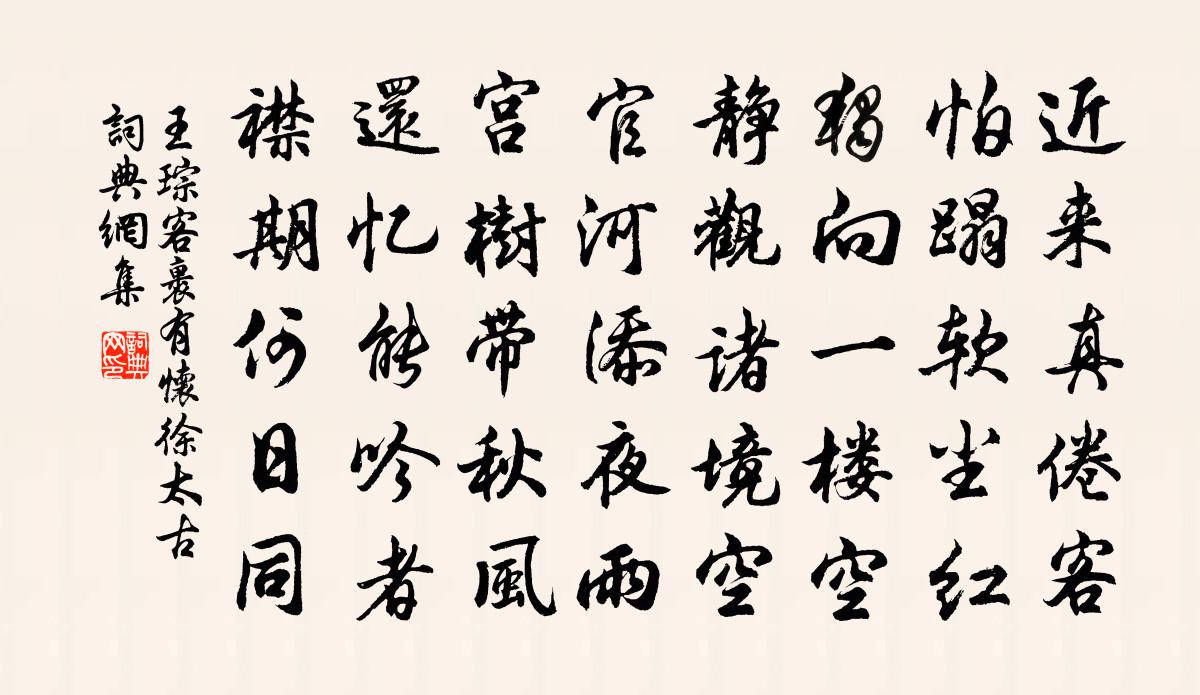 近来真倦客
怕蹋软尘红
獨向一楼空
静觀諸境空
官河添夜雨
宫樹带秋風
還忆能吟者
襟期何日同
王琮客裏有懷徐太古
詞典網集
詞典网印